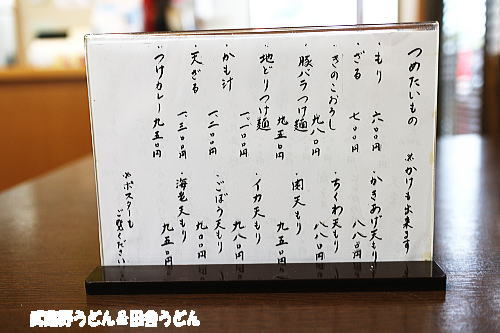 つめたいもの ※かけも出来ます
・もり 六〇〇円
・ざる 七〇〇円
・きのこおろし 九八〇円
・豚バラつけ麺 九五〇円
・地どりつけ麺 一、一〇〇円
・かも汁 一、二〇〇円
・天ざる 一、三〇〇円
・つけカレー 九五〇円
・かきあげ天もり 八八〇円
・ちくわ天もり 八八〇円
・肉天もり 九五〇円
・イカ天もり 九八〇円
・ごぼう天もり 九〇〇円
・海老天もり 九五〇円
※ポスターも
ご覧ください
武蔵野うどん&田舎うどん